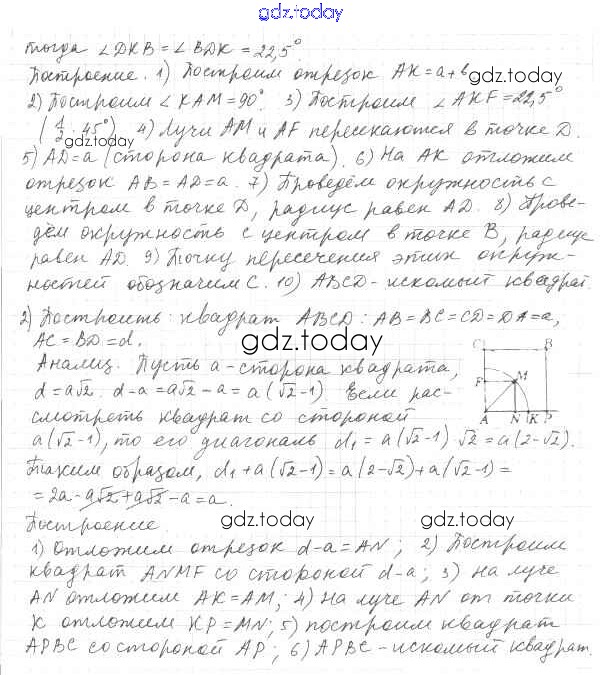 gdz.today
тогда ∠DKB = ∠BDK = 22,5°
Построение. 1) Построим отрезок AK = a + b
gdz.today
2) Построим ∠KAM = 90°. 3) Построим ∠AKF = 22,5°
(1/2 · 45°) 4) Лучи AM и AF пересекаются в точке D.
gdz.today
5) AD = a (сторона квадрата). 6) На AK отложим
отрезок AB = AD = a. 7) Проведём окружность с
центром в точке D, радиус равен AD. 8) Прове-
дём окружность с центром в точке B, радиус
равен AD. 9) Точку пересечения этих окруж-
ностей обозначим C. 10) ABCD - искомый квадрат.
2) Построить: квадрат ABCD: AB = BC = CD = DA = a,
AC = BD = d.
gdz.today
Анализ. Пусть a - сторона квадрата,
d = a√2. d - a = a√2 - a = a(√2 - 1) Если рас-
смотреть квадрат со стороной
a(√2 - 1), то его диагональ d₁ = a(√2 - 1)·√2 = a(2 - √2).
C B
F M
A N K P
Таким образом, d₁ + a(√2 - 1) = a(2 - √2) + a(√2 - 1) =
= 2a - a√2 + a√2 - a = a.
Построение.
gdz.today gdz.today
1) Отложим отрезок d - a = AN; 2) Построим
квадрат ANMF со стороной d - a; 3) На луче
AN отложим AK = AM; 4) На луче AN от точки
K отложим KP = MN; 5) построим квадрат
APBC со стороной AP; 6) APBC - искомый квадрат.